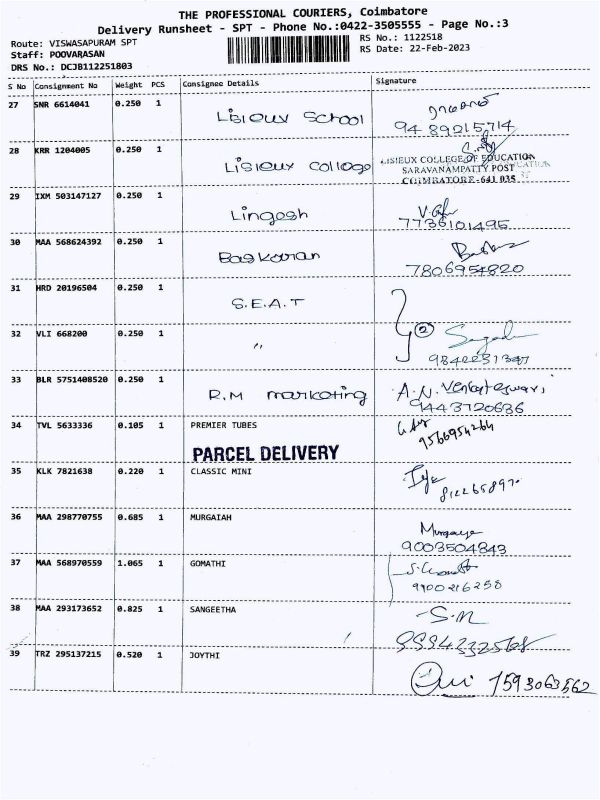 THE PROFESSIONAL COURIERS, Coimbatore
Delivery Runsheet - SPT - Phone No.:0422-3505555 - Page No.:3
Route: VISWASAPURAM SPT RS No.: 1122518
Staff: POOVARASAN RS Date: 22-Feb-2023
DRS No.: DCJB112251803
S No Consignment No Weight PCS Consignee Details Signature
27 SNR 6614041 0.250 1 Lisieux School
94 89215714
28 KRR 1204005 0.250 1 Lisieux college
LISIEUX COLLEGE OF EDUCATION
SARAVANAMPATTY POST
COIMBATORE-641 035
29 IXM 503147127 0.250 1 Lingesh
7736101495
30 MAA 568624392 0.250 1 Baskaran
7806954820
31 HRD 20196504 0.250 1 S.E.A.T
32 VLI 668200 0.250 1 〃 2
9842231347
33 BLR 5751408520 0.250 1 R.M marketing A.N. Venkateswari
9443720636
34 TVL 5633336 0.105 1 PREMIER TUBES
9566954264
PARCEL DELIVERY
35 KLK 7821638 0.220 1 CLASSIC MINI
36 MAA 298770755 0.685 1 MURGAIAH
Murgaiya
9003504843
37 MAA 568970559 1.065 1 GOMATHI
9900216258
38 MAA 293173652 0.825 1 SANGEETHA S.M
9994232568
39 TRZ 295137215 0.520 1 JOYTHI
7593063562